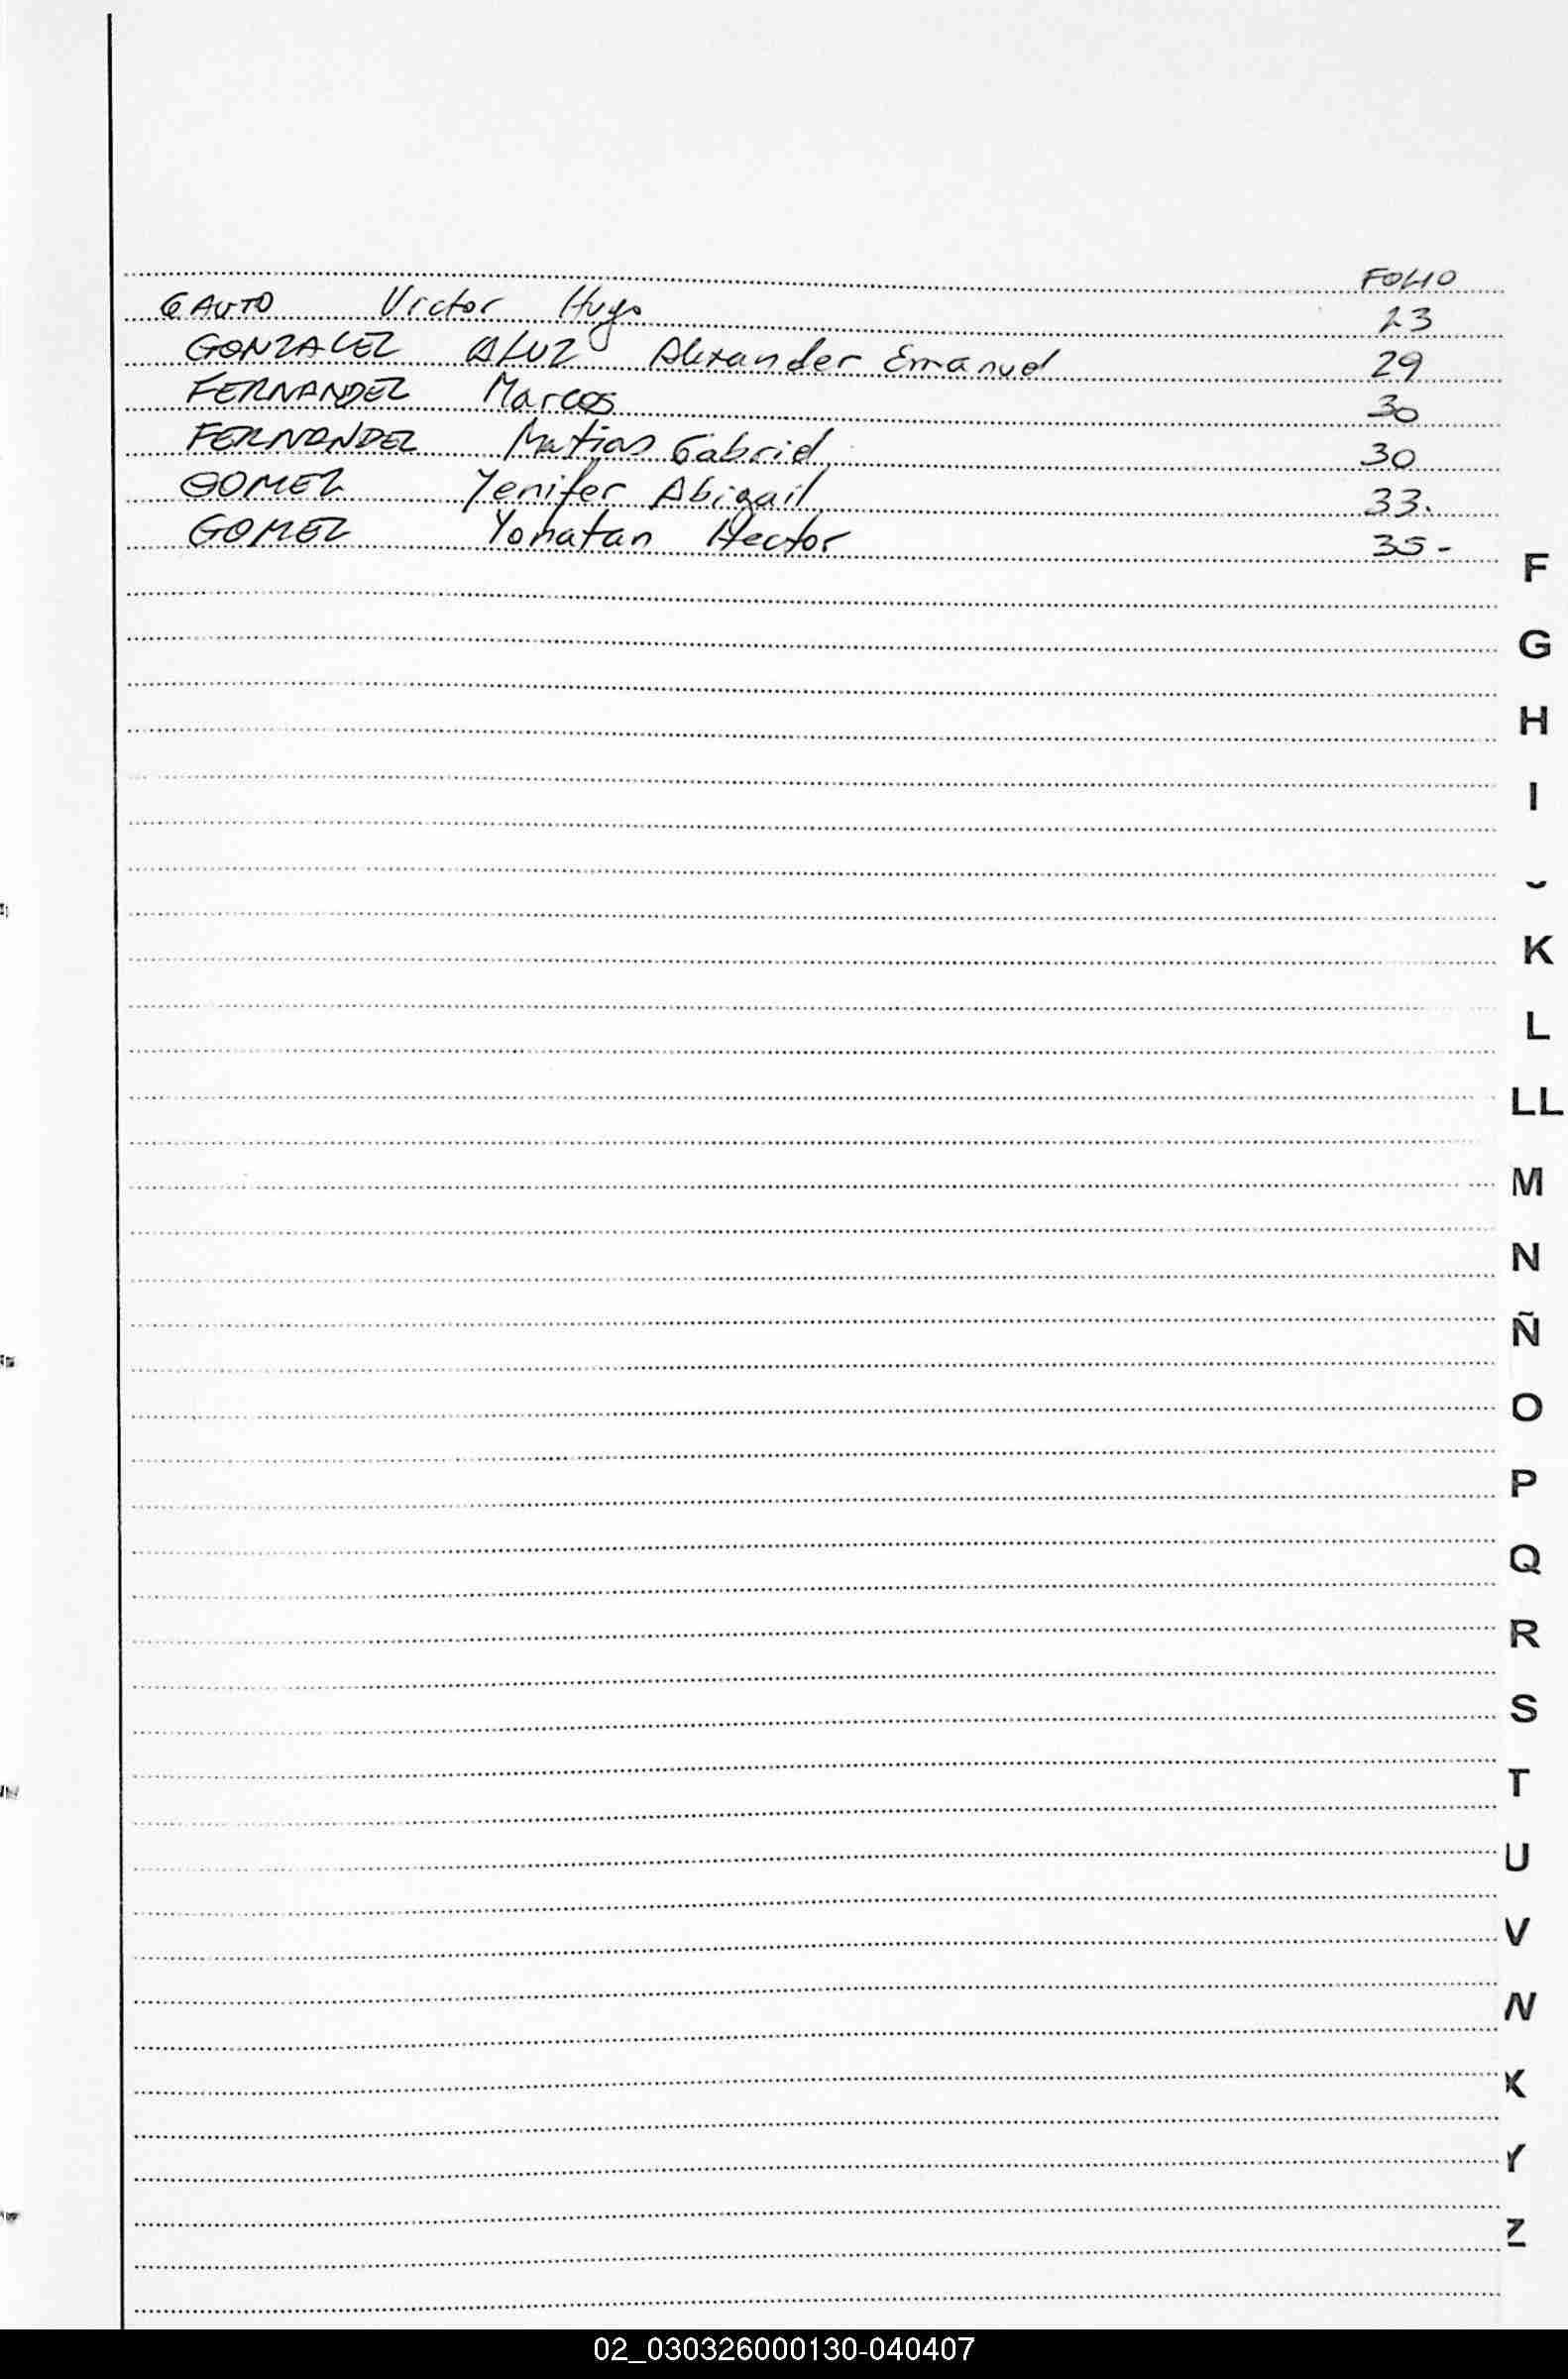 FOLIO
GAUTO Victor Hugo 23
GONZALEZ Alexander Emanuel 29
FERNANDEZ Marcos 30
FERNANDEZ Matias Gabriel 30
GOMEZ Yenifer Abigail 33.
GOMEZ Yonatan Hector 35-
F
G
H
I
K
L
LL
M
N
Ñ
O
P
Q
R
S
T
U
V
X
Y
Z
02_030326000130-040407